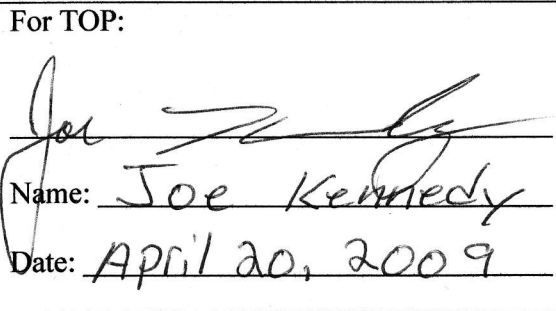 For TOP:
Joe Kennedy
Name: Joe Kennedy
Date: April 20, 2009